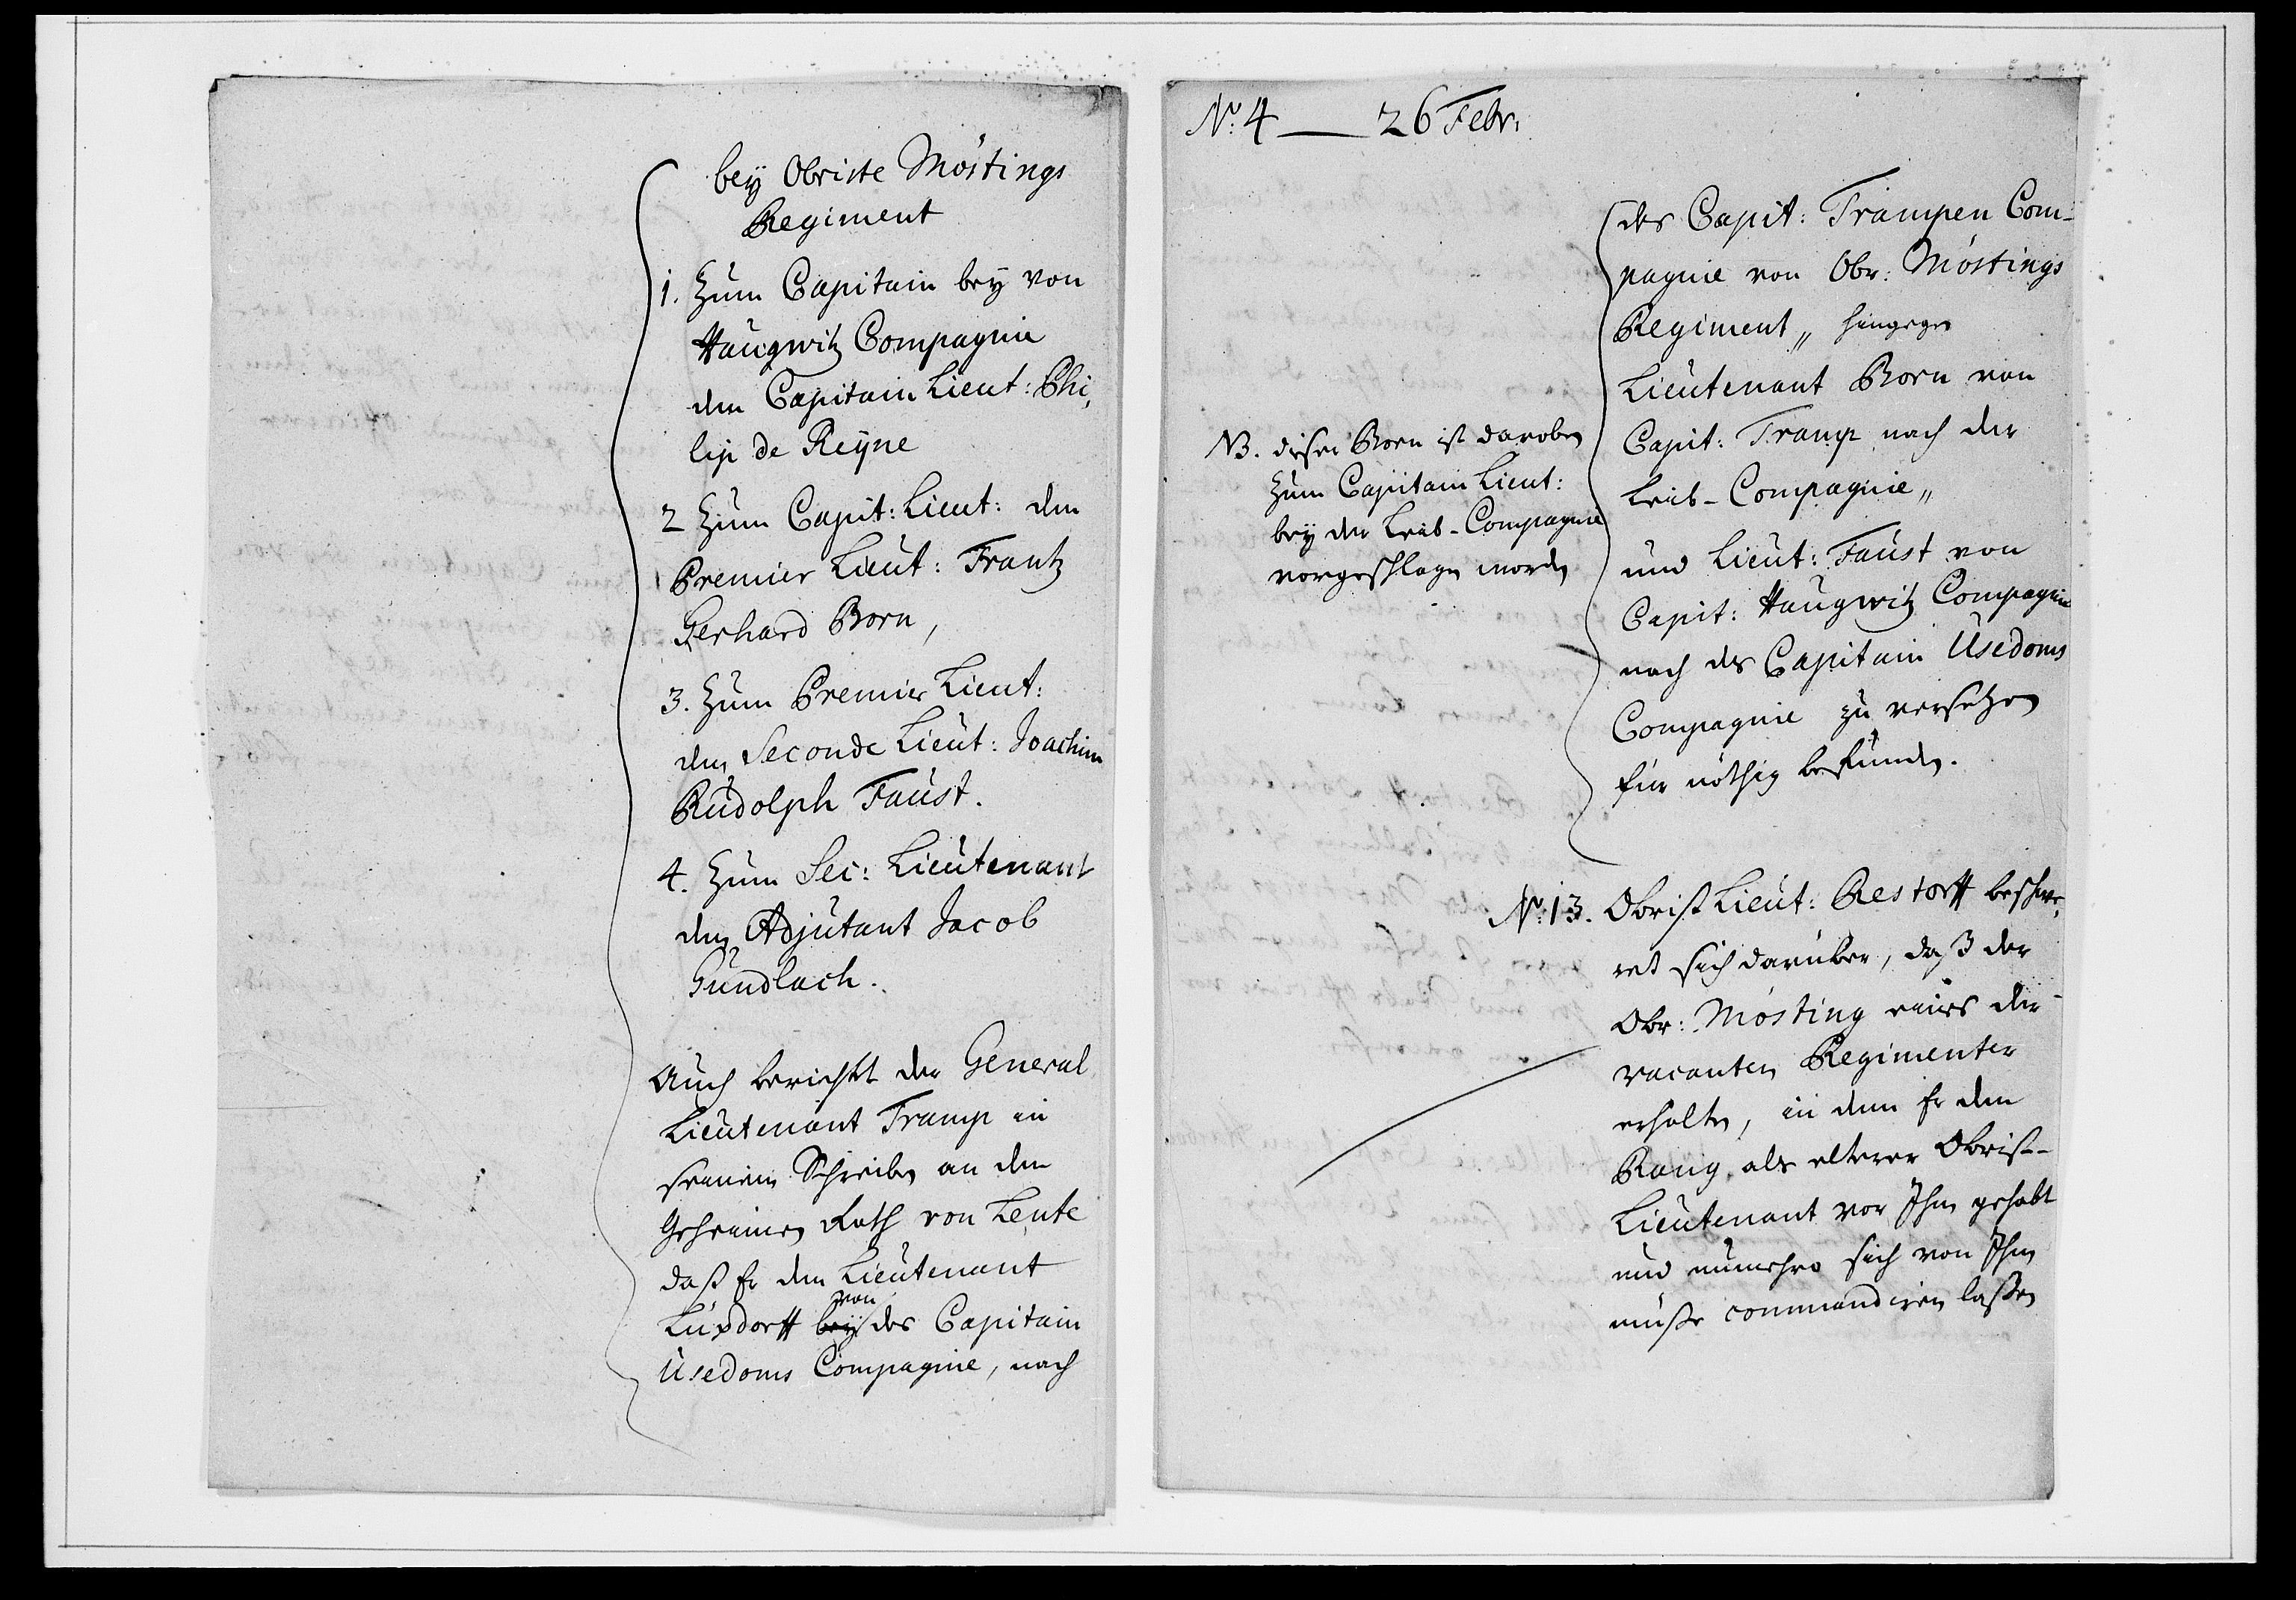 bey Obriste Möstings
Regiment
1. Zum Capitain bey von
Haugwitz Compagnie
den Capitain Lieut: Phi,
lip de Reÿne
2 Zum Capit: Lieut: den
Premier Lieut: Frantz
Gerhard Born,
3. Zum Premier Lieut:
den Seconde Lieut: Joachim
Rudolph Faust.
4. Zum Sec: Lieutenant
den Adjutant Jacob
Gundlach.
Auch berichtet der General
Lieutenant Tramp in
seinem Schreiben an den
Geheimen Rath von Lente
daß Er den Lieutenant
von
Luxdorff bey des Capitain
Usedoms Compagnie, nach
No: 4 — 26 Febr:
des Capit: Trampen Com-
pagnie von Obr: Möstings
Regiment„ hingegen
Lieutenant Born von
Capit: Tramp nach der
Leib-Compagnie„
und Lieut: Faust von
Capit: Haugwitz Compagnie
nach des Capitain Usedoms
Compagnie zu versetzen
für nöthig befunden.
NB. dieser Born ist daroben
zum Capitain Lieut:
bey der Leib-Compagnie
vorgeschlagen worden
No: 13. Obrist Lieut: Restorff beschwe,
ret sich darüber, daß der
Obr: Mösting eines der
vacanten Regimenter
erhalten, in dem Er den
Rang, als elterer Obrist-
Lieutenant vor Ihm gehabt
und nunmehro sich von Ihm
müße commandiren laßen